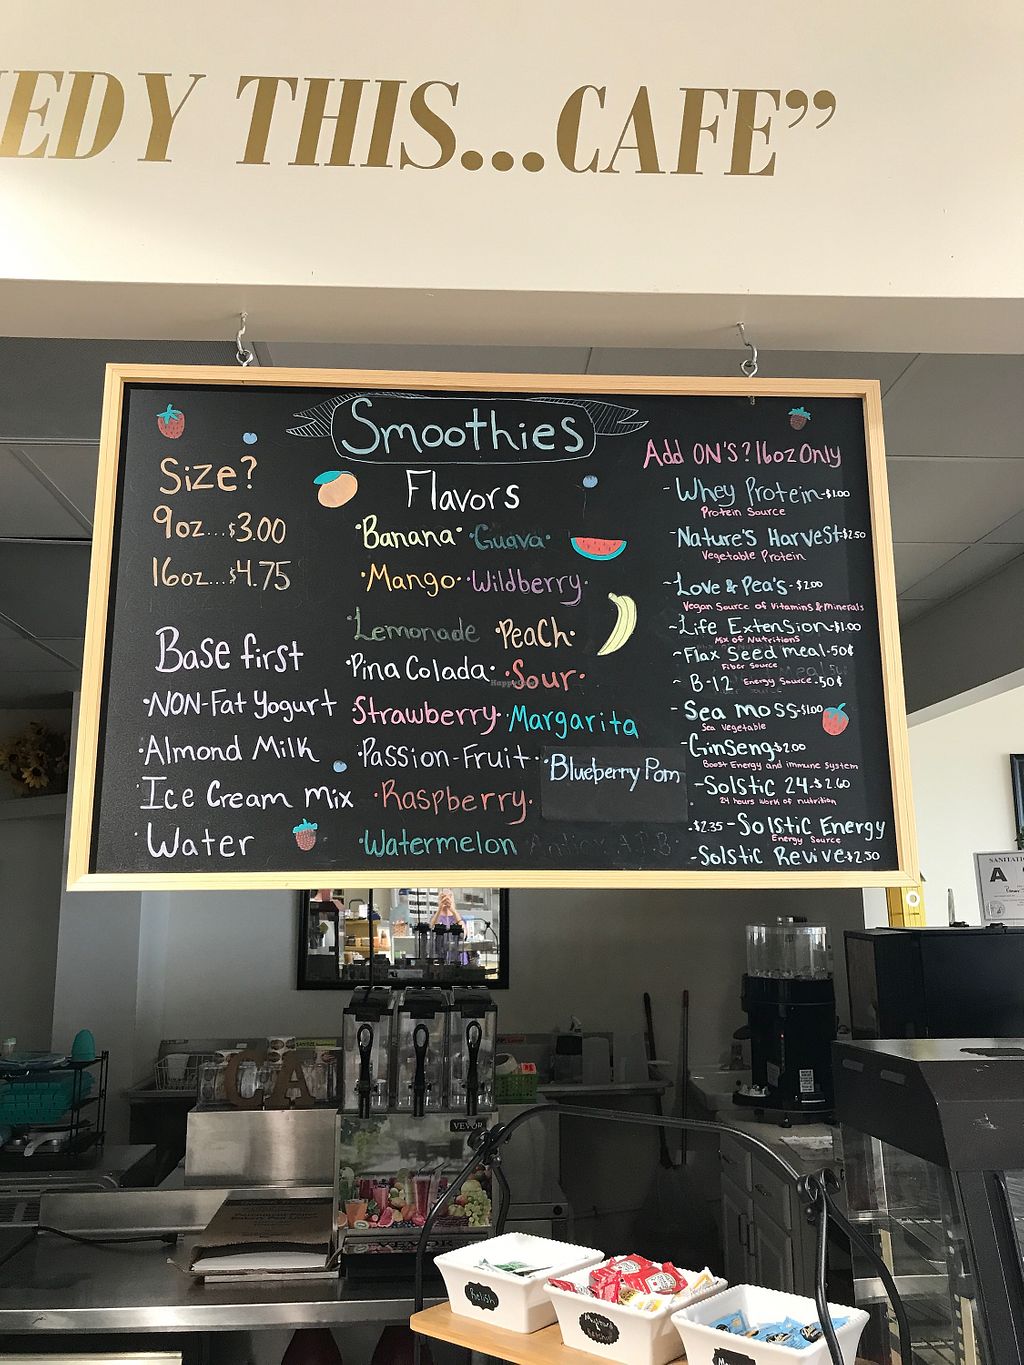 EDY THIS...CAFE”
Smoothies
Size?
9oz...$3.00
16oz...$4.75
Base first
·NON-Fat Yogurt
·Almond Milk
·Ice Cream Mix
·Water
Flavors
·Banana· ·Guava·
·Mango· ·Wildberry·
·Lemonade ·PeaCh·
·Pina Colada· ·Sour·
Strawberry· Margarita
·Passion-Fruit· ·Blueberry Pom
·Raspberry·
·Watermelon
Add ON'S? 16oz Only
-Whey Protein-$1.00
Protein Source
-Nature's Harvest-$2.50
Vegetable Protein
~Love & Pea's-$2.00
Vegan Source of Vitamins & Minerals
~Life Extension-$1.00
Mix of Nutritions
~Flax Seed meal-50¢
Fiber Source
~ B-12 Energy Source-50¢
-Sea moss-$1.00
Sea Vegetable
-Ginseng $2.00
Boost Energy and immune System
-Solstic 24-$2.60
24 hours work of nutrition
.$2.35-Solstic Energy
Energy Source
-Solstic Revive-$2.50
HappyCow
SANITATI
A
CA
VEVOR
VEVOR
Relish